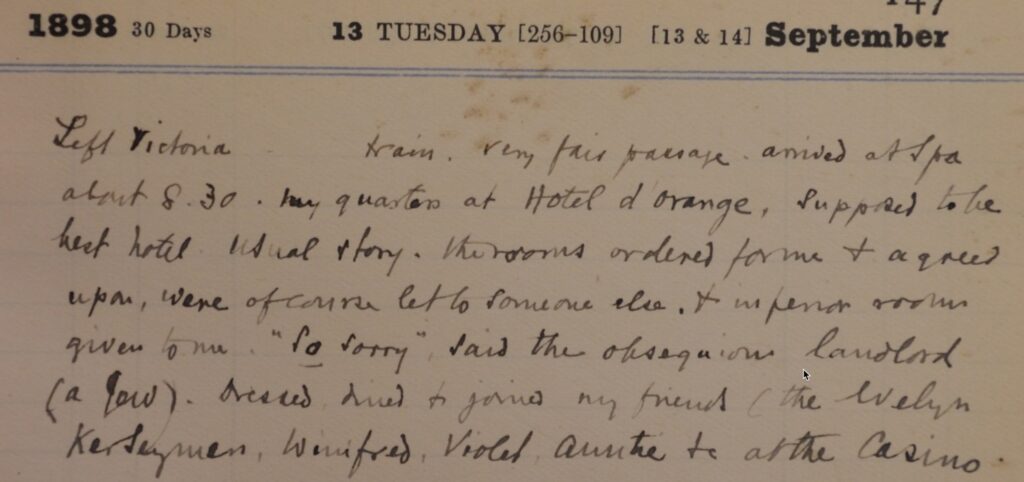 147
1898 30 Days 13 TUESDAY [256–109] [13 & 14] September
Left Victoria train. very fair passage. arrived at Spa
about 8.30. my quarters at Hotel d'Orange, supposed to be
best hotel. Usual story. the rooms ordered for me & agreed
upon, were of course let to someone else. & inferior rooms
given to me. "So sorry" said the obsequious landlord
(a Jew). Dressed dined & joined my friends (the Evelyn
Kerseymen, Winifred, Violet, Auntie &c at the Casino.